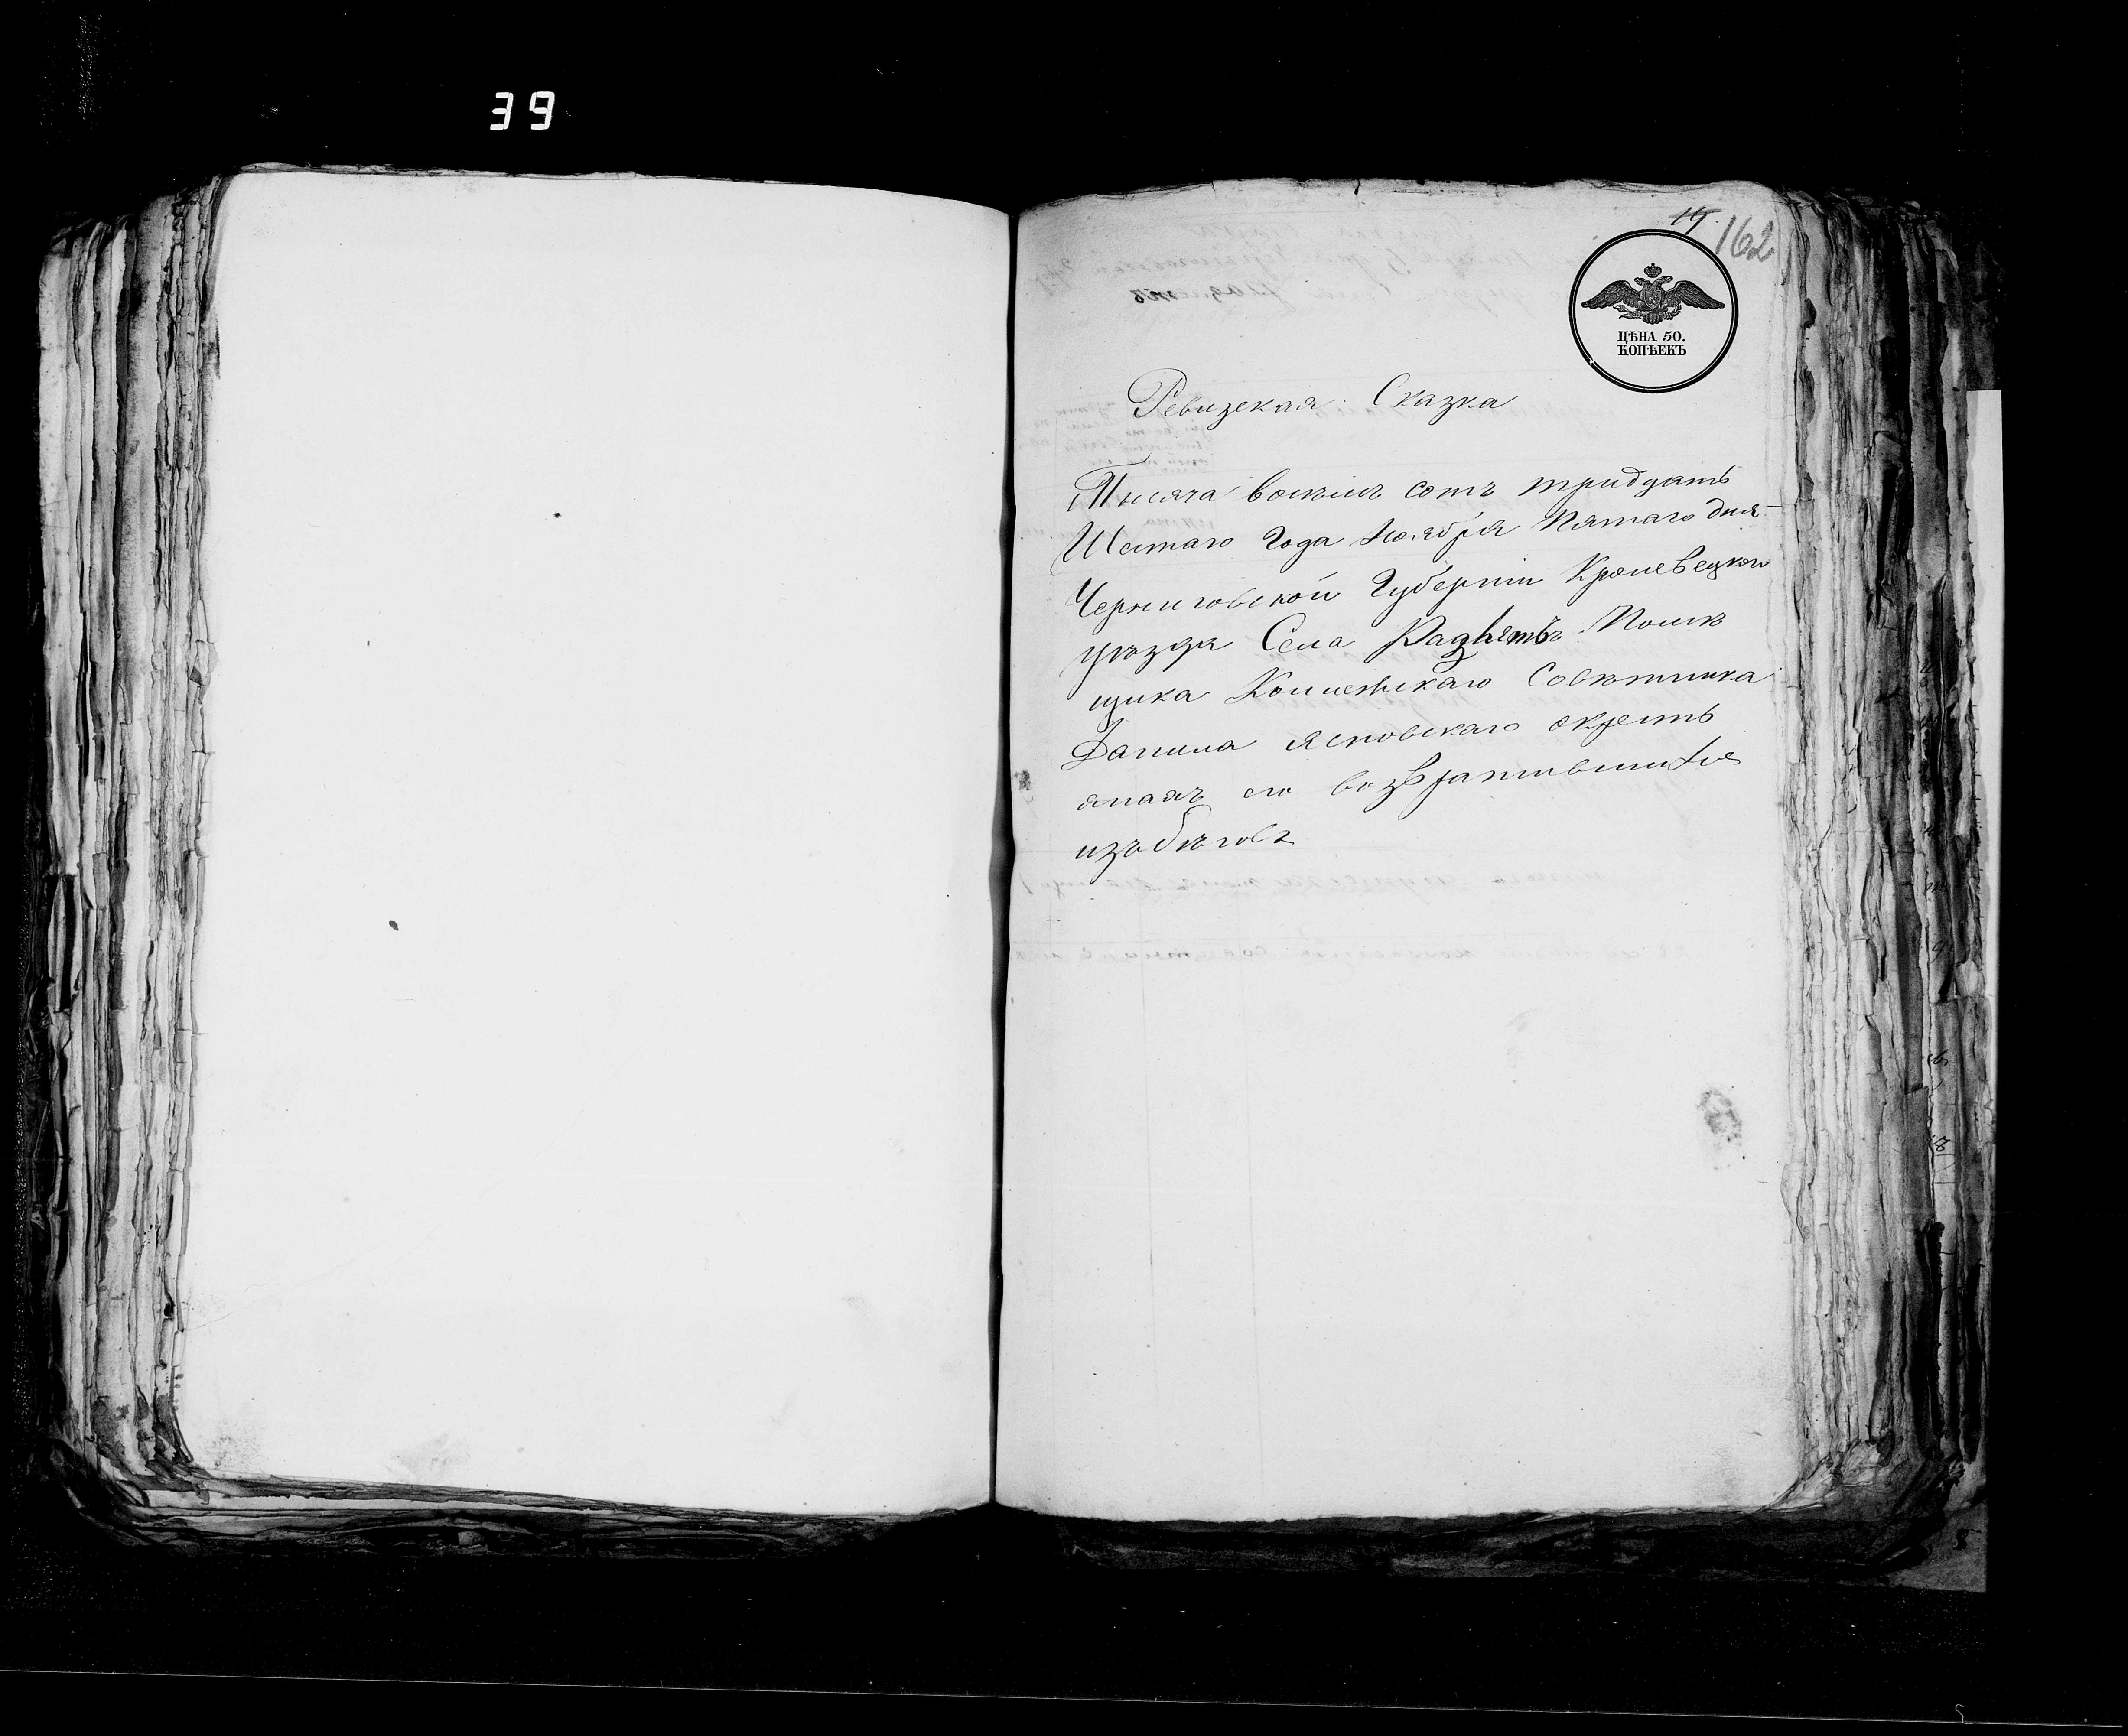 39
19.
162
ЦѢНА 50.
КОПѢЕКЪ
Ревизская Сказка
Тысяча восемь сотъ тридцать
Шестаго Года Ноября Пятаго дня
Черниговской Губерніи Кролевецкого
уѣзда Села Помѣ
щика Коллежскаго Совѣтника
Данила Ясновскаго о крестъ
янахъ его возвратившихся
изъ бѣговъ